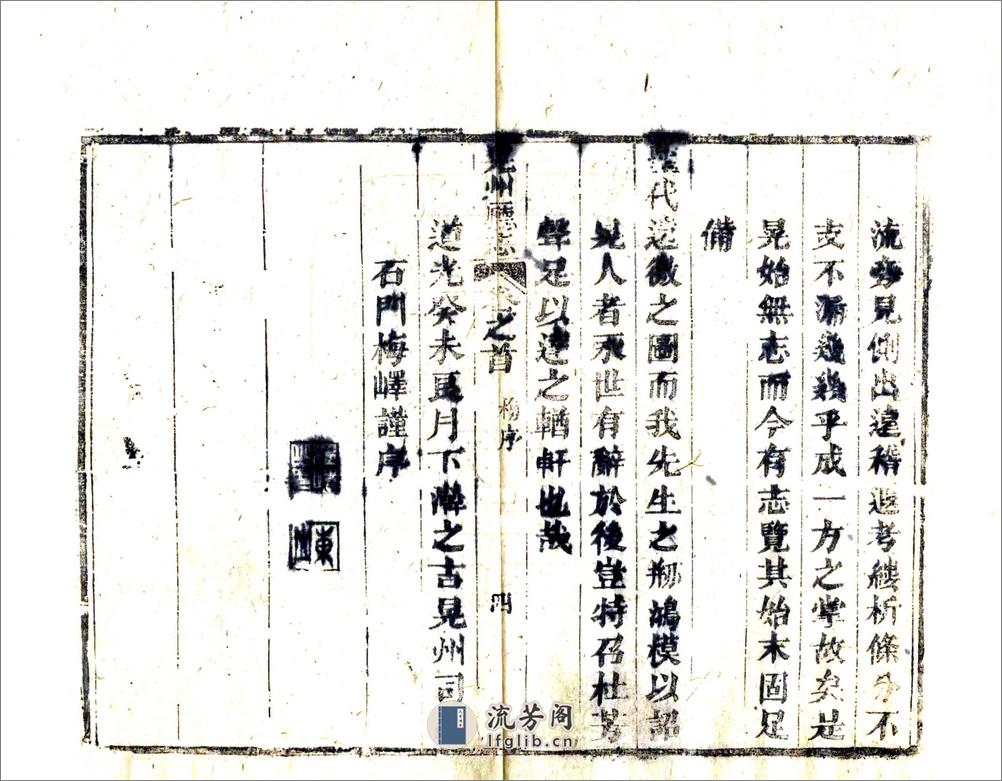 流旁見側出遠稽近考縷析條分不
支不漏幾幾乎成一方之掌故矣是
晃始無志而今有志覽其始末固足
備
代邊徼之圖而我先生之剏鴻模以詔
晃人者永世有辭於後豈特召杜芳
聲足以達之輶軒也哉
晃州廳志
之首
梅序
四
道光癸未夏月下澣之吉晃州司
石門梅嶧謹序
東
流芳阁
lfglib.cn